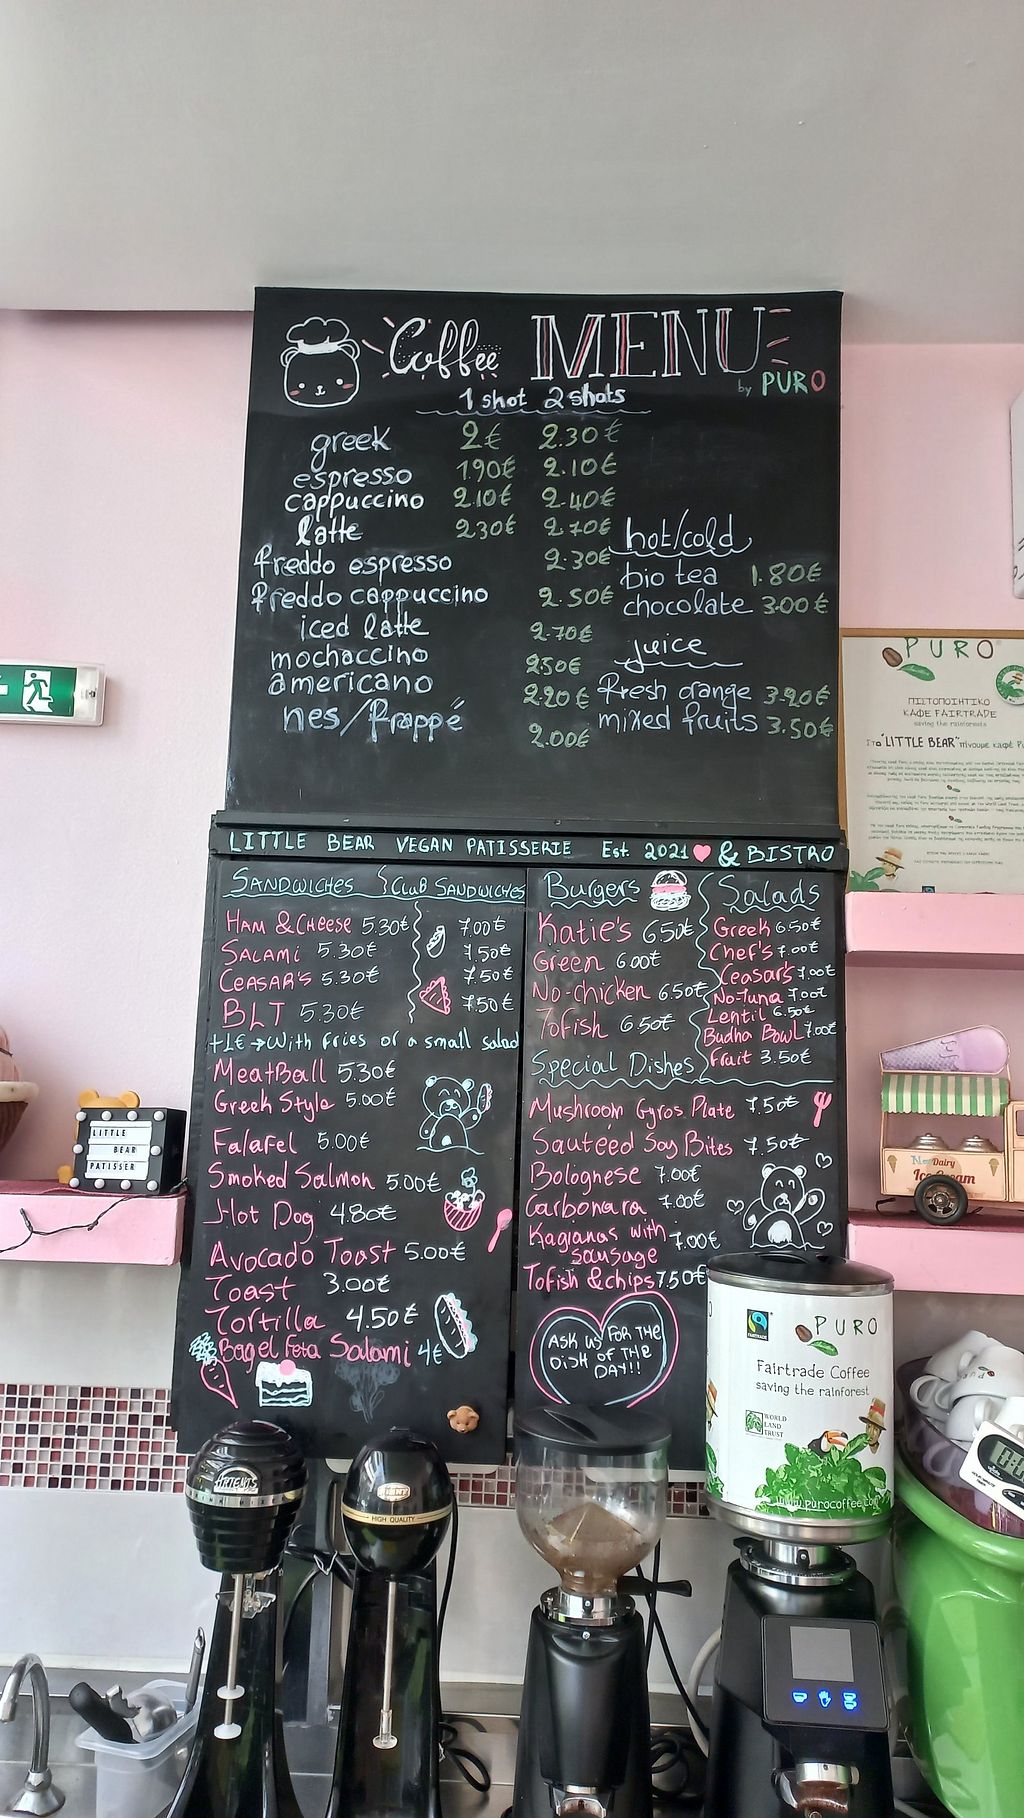 Coffee MENU
by PURO
1 shot 2 shots
greek 2€ 2.30€
espresso 1.90€ 2.10€
cappuccino 2.10€ 2.40€
latte 2.30€ 2.70€
freddo espresso 2.30€
freddo cappuccino 2.50€
iced latte 2.70€
mochaccino 2.50€
americano 2.20€
nes/frappé 2.00€
hot/cold
bio tea 1.80€
chocolate 3.00€
juice
fresh orange 3.20€
mixed fruits 3.50€
LITTLE BEAR VEGAN PATISSERIE Est. 2021 & BISTRO
SANDWICHES CLUB SANDWICHES
HAM & CHEESE 5.30€ 7.00€
SALAMI 5.30€ 7.50€
CEASAR'S 5.30€ 7.50€
BLT 5.30€ 7.50€
+1€ → With fries or a small salad
MeatBall 5.30€
Greek Style 5.00€
Falafel 5.00€
Smoked Salmon 5.00€
Hot Dog 4.80€
Avocado Toast 5.00€
Toast 3.00€
Tortilla 4.50€
Bagel Feta Salami 4€
Burgers
Katie's 6.50€
Green 6.00€
No-chicken 6.50€
Tofish 6.50€
Salads
Greek 6.50€
Chef's 7.00€
Ceasar's 7.00€
No-Tuna 7.00€
Lentil 6.50€
Budha Bowl 7.00€
Fruit 3.50€
Special Dishes
Mushroom Gyros Plate 7.50€
Sauteéd Soy Bites 7.50€
Bolognese 7.00€
Carbonara 7.00€
Kagianas with
sausage 7.00€
Tofish & chips 7.50€
ASK US FOR THE
DISH OF THE
DAY!!!
LITTLE
BEAR
PATISSER
PURO
ΠΙΣΤΟΠΟΙΗΤΙΚΟ
ΚΑΦΕ FAIRTRADE
saving the rainforests
Στο "LITTLE BEAR" πίνουμε καφέ
Dairy
Ice Cream
FAIRTRADE
PURO
Fairtrade Coffee
saving the rainforest
WORLD
LAND
TRUST
www.purocoffee.com
ARTEMIS
HIGH QUALITY